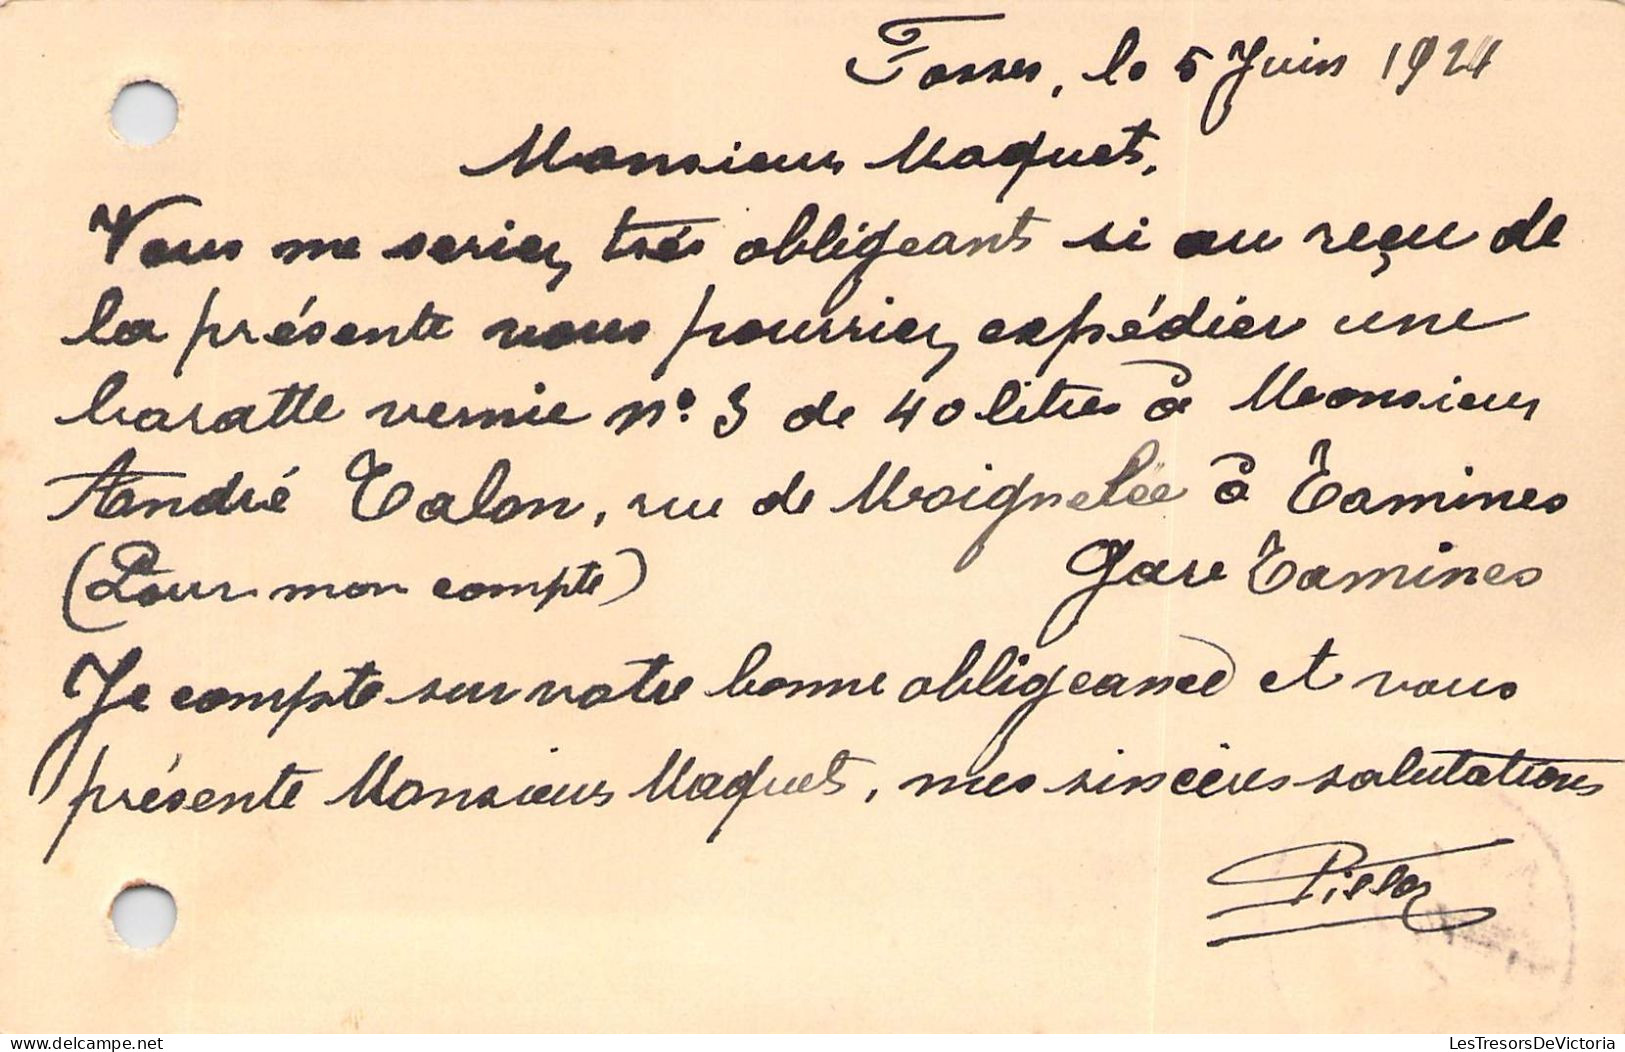 Fosses, le 5 Juin 1924
Monsieur Maquet,
Vous me seriez très obligeant si au reçu de
la présente vous pourriez expédier une
baratte vernie n° 3 de 40 litres à Monsieur
André Talon, rue de Moignelée à Tamines
(Pour mon compte) Gare Tamines
Je compte sur votre bonne obligeance et vous
présente Monsieur Maquet, mes sincères salutations
delcampe.net
LesTresorsDeVictoria